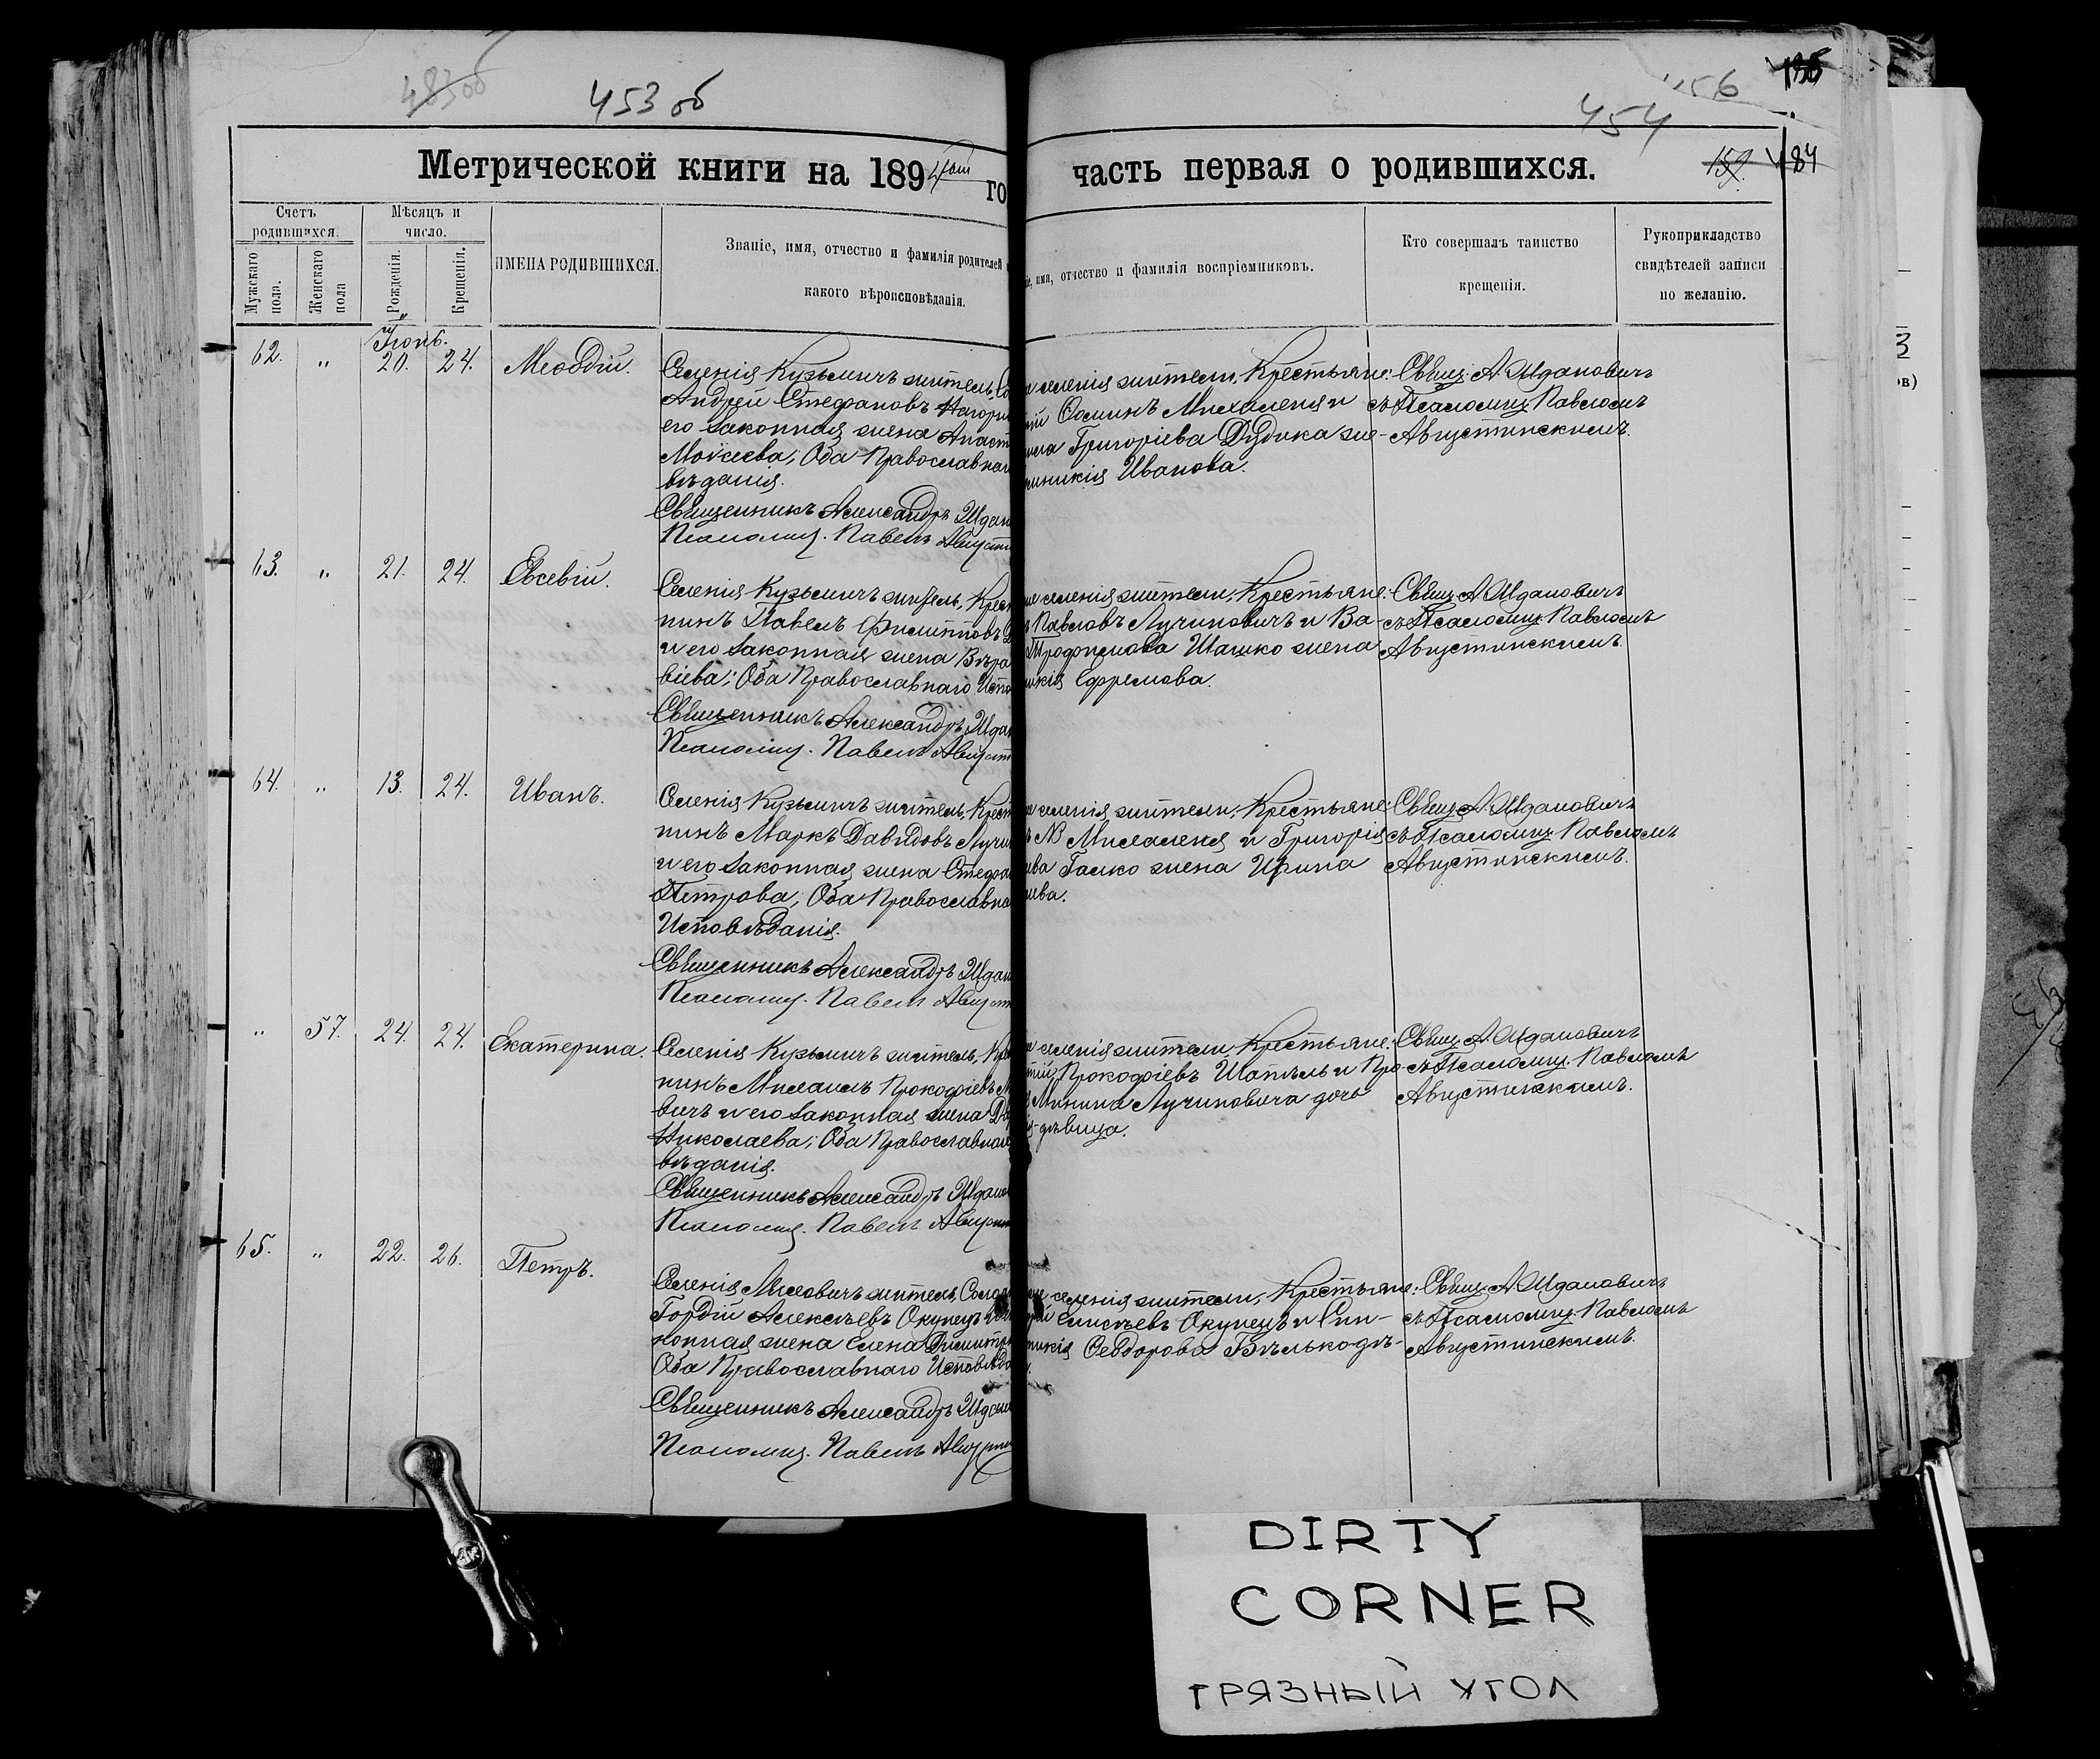 453 об
454
156
Метрической книги на 1894ый го
часть первая о родившихся.
484
Счетъ родившихся.
Мѣсяцъ и число.
ИМЕНА РОДИВШИХСЯ.
Званіе, имя, отчество и фамилія родителей
какого вѣроисповѣданія.
Мужскаго пола.
Женскаго пола
Рожденія.
Крещенія.
имя, отчество и фамилія воспріемниковъ.
Кто совершалъ таинство
крещенія.
Рукоприкладство
свидѣтелей записи
по желанію.
Іюнь.
62. " 20. 24. Меѳодій.
Селенія Кузьмичъ житель, Со
Андрей Стефановъ
его законная жена Анаст
Моісеева; Оба Православна
вѣданія.
Священникъ Александръ Ждан
Псаломщ. Павелъ Августи
селенія жители, Крестьяне:
Ѳоминъ Михаленя и
Григоріева Дудика же-
Иванова.
Свящ. А. Ждановичъ
съ Псаломщ. Павломъ
Августинскимъ.
63. " 21. 24. Евсевій.
Селенія Кузьмичъ житель, Крест
нинъ Павелъ Филипповъ
и его законная жена Вѣра
віева; Оба Православнаго Испо
Священникъ Александръ Ждан
Псаломщ. Павелъ Август
селенія жители, Крестьяне:
Павловъ Лучиновичъ и Ва-
Шашко жена
Ефремова.
Свящ. А. Ждановичъ
съ Псаломщ. Павломъ
Августинскимъ.
64. " 13. 24. Иванъ.
Селенія Кузьмичъ житель, Крест
нинъ Маркъ Давидовъ Лучи
и его законная жена Стефа
Петрова; Оба Православна
Исповѣданія.
Священникъ Александръ Ждан
Псаломщ. Павелъ Август
селенія жители, Крестьяне:
Михаленя и Григорія
Галко жена Ирина
ева.
Свящ. А. Ждановичъ
съ Псаломщ. Павломъ
Августинскимъ.
" 57. 24. 24. Екатерина.
Селенія Кузьмичъ житель, Кре
нинъ Михаилъ Прокофіевъ
вичъ и его законная жена
Николаева; Оба Православна
вѣданія.
Священникъ Александръ Ждан
Псаломщ. Павелъ Август
селенія жители, Крестьяне:
Прокофіевъ Шапѣль и Про-
Минина Лучиновича дочь
дѣвица.
Свящ. А. Ждановичъ
съ Псаломщ. Павломъ
Августинскимъ.
65. " 22. 26. Петръ.
Селенія житель, Солда
Гордій Алексѣевъ Окунецъ
конная жена Елена Димитр
Оба Православнаго Исповѣда
Священникъ Александръ Ждан
Псаломщ. Павелъ Август
селенія жители, Крестьяне:
Елисѣевъ Окунецъ и Син-
Ѳеодорова
Свящ. А. Ждановичъ
съ Псаломщ. Павломъ
Августинскимъ.
DIRTY
CORNER
ГРЯЗНЫЙ УГОЛ